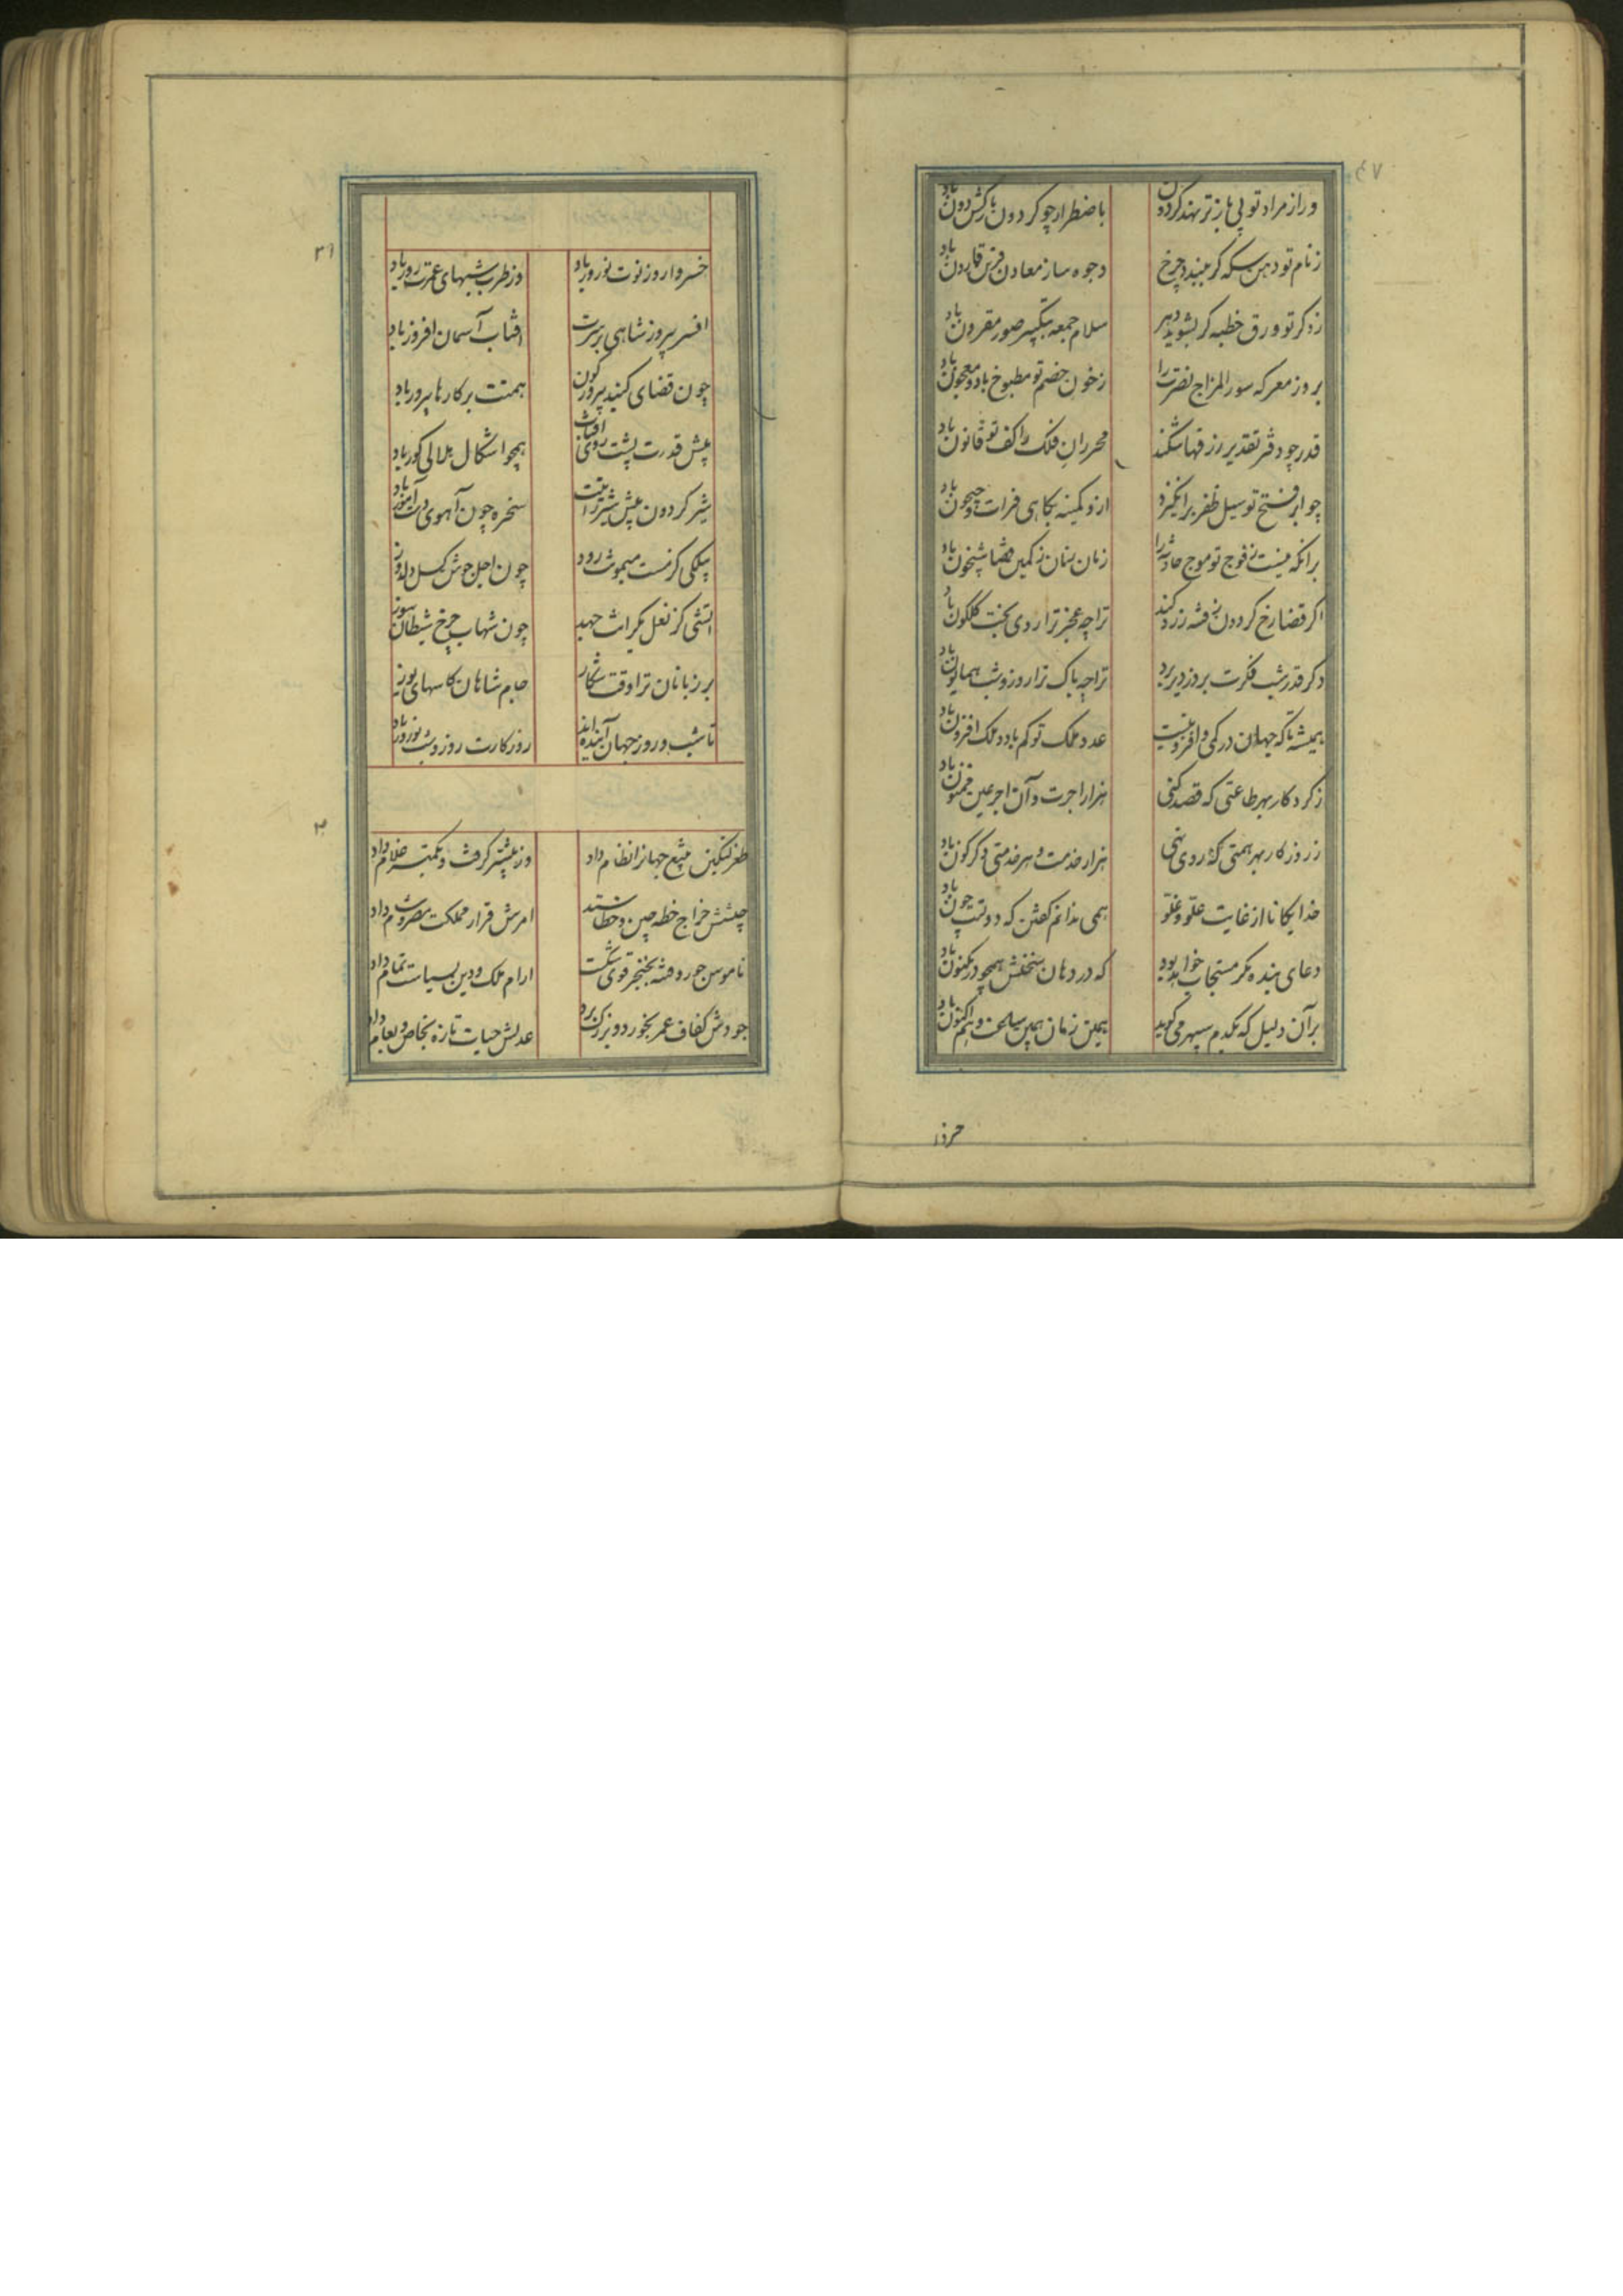 ۴۷
ور از مراد تو پی باز تر نهد کردون باضطرار چو کردون بارکش دون باد
ز نام تو دهن سکه کر ببندد چرخ وجوه ساز معادن قرین قارون باد
ز ذکر تو ورق خطبه کر بشوید دهر سلام جمعه بتکبیر صور مقرون باد
بروز معرکه سوء المزاج نصرت را ز خون خصم تو مطبوخ باد و معجون باد
قدر چو دفتر تقدیر رزقها شکند محرران فلک را کف تو قانون باد
چو ابر فتح تو سیل ظفر برانکیزد ازو کمینه بکاهی فرات و جیحون باد
برانکه نیست ز فوج تو موج حادثه را زمان زمان ز کمین قضا شبیخون باد
اکر قضا رخ کردون ز فتنه زرد کند ترا چه عجز ترا روی بخت کلکون باد
دکر قدر شب فکرت بروز دیر برد ترا چه باک ترا روز و شب همایون باد
همیشه تا که جهان در کمی و افزونیست عدد ملک تو کم باد و ملک افزون باد
ز کردکار بهر طاعتی که قصد کنی هزار اجرت و آن اجر غیر ممنون باد
ز روزکار بهر همتی که روی نهی هزار خدمت و هر خدمتی دکرکون باد
خدایکانا از غایت علو و غلو همی ندانم کفتن که دولتت چون باد
دعای بنده مکر مستجاب خواهد بود که در دهان سخنش همچو در مکنون باد
برآن دلیل که یکدم سپهر می کوید همین زمان همین ساعت و هم اکنون باد
خسروا
۳۱
خسروا روزت نوت نوروز باد وز طرب شبهای عمرت روز باد
افسر پیروز شاهی بر سرت آفتاب آسمان افروز باد
چون قضای کنبد پیروزه کون همتت بر کارها پیروز باد
پیش قدرت پشت و روی آفتاب همچو اشکال هلالی کوز باد
شیر کردون پیش شیر رایتت سخره چون آهوی دست آموز باد
پیلکی کز شست میمونت رود چون اجل جوشن کسل دلدوز باد
آتشی کز نعل یکرانت جهد چون شهاب چرخ شیطان سوز باد
بر زبانان ترا وقت شکار جام شاهان کاسهای یوز باد
تا شب و روز جهان آینده‌اند روز کارت روز و شب نوروز باد
۳۲
طغرلتکین بتیغ جهانرا نظام داد وز بیشتر کرفت و بکمتر غلام داد
چشمش خراج خطه چین و خطا ستد امرش قرار مملکت مصر و شام داد
ناموس جور و فتنه بخنجر قوی شکست آرام ملک و دین بسیاست تمام داد
جودش کفاف عمر بخورد و بزرک برد عدلش حیات تازه بخاص و بعام داد